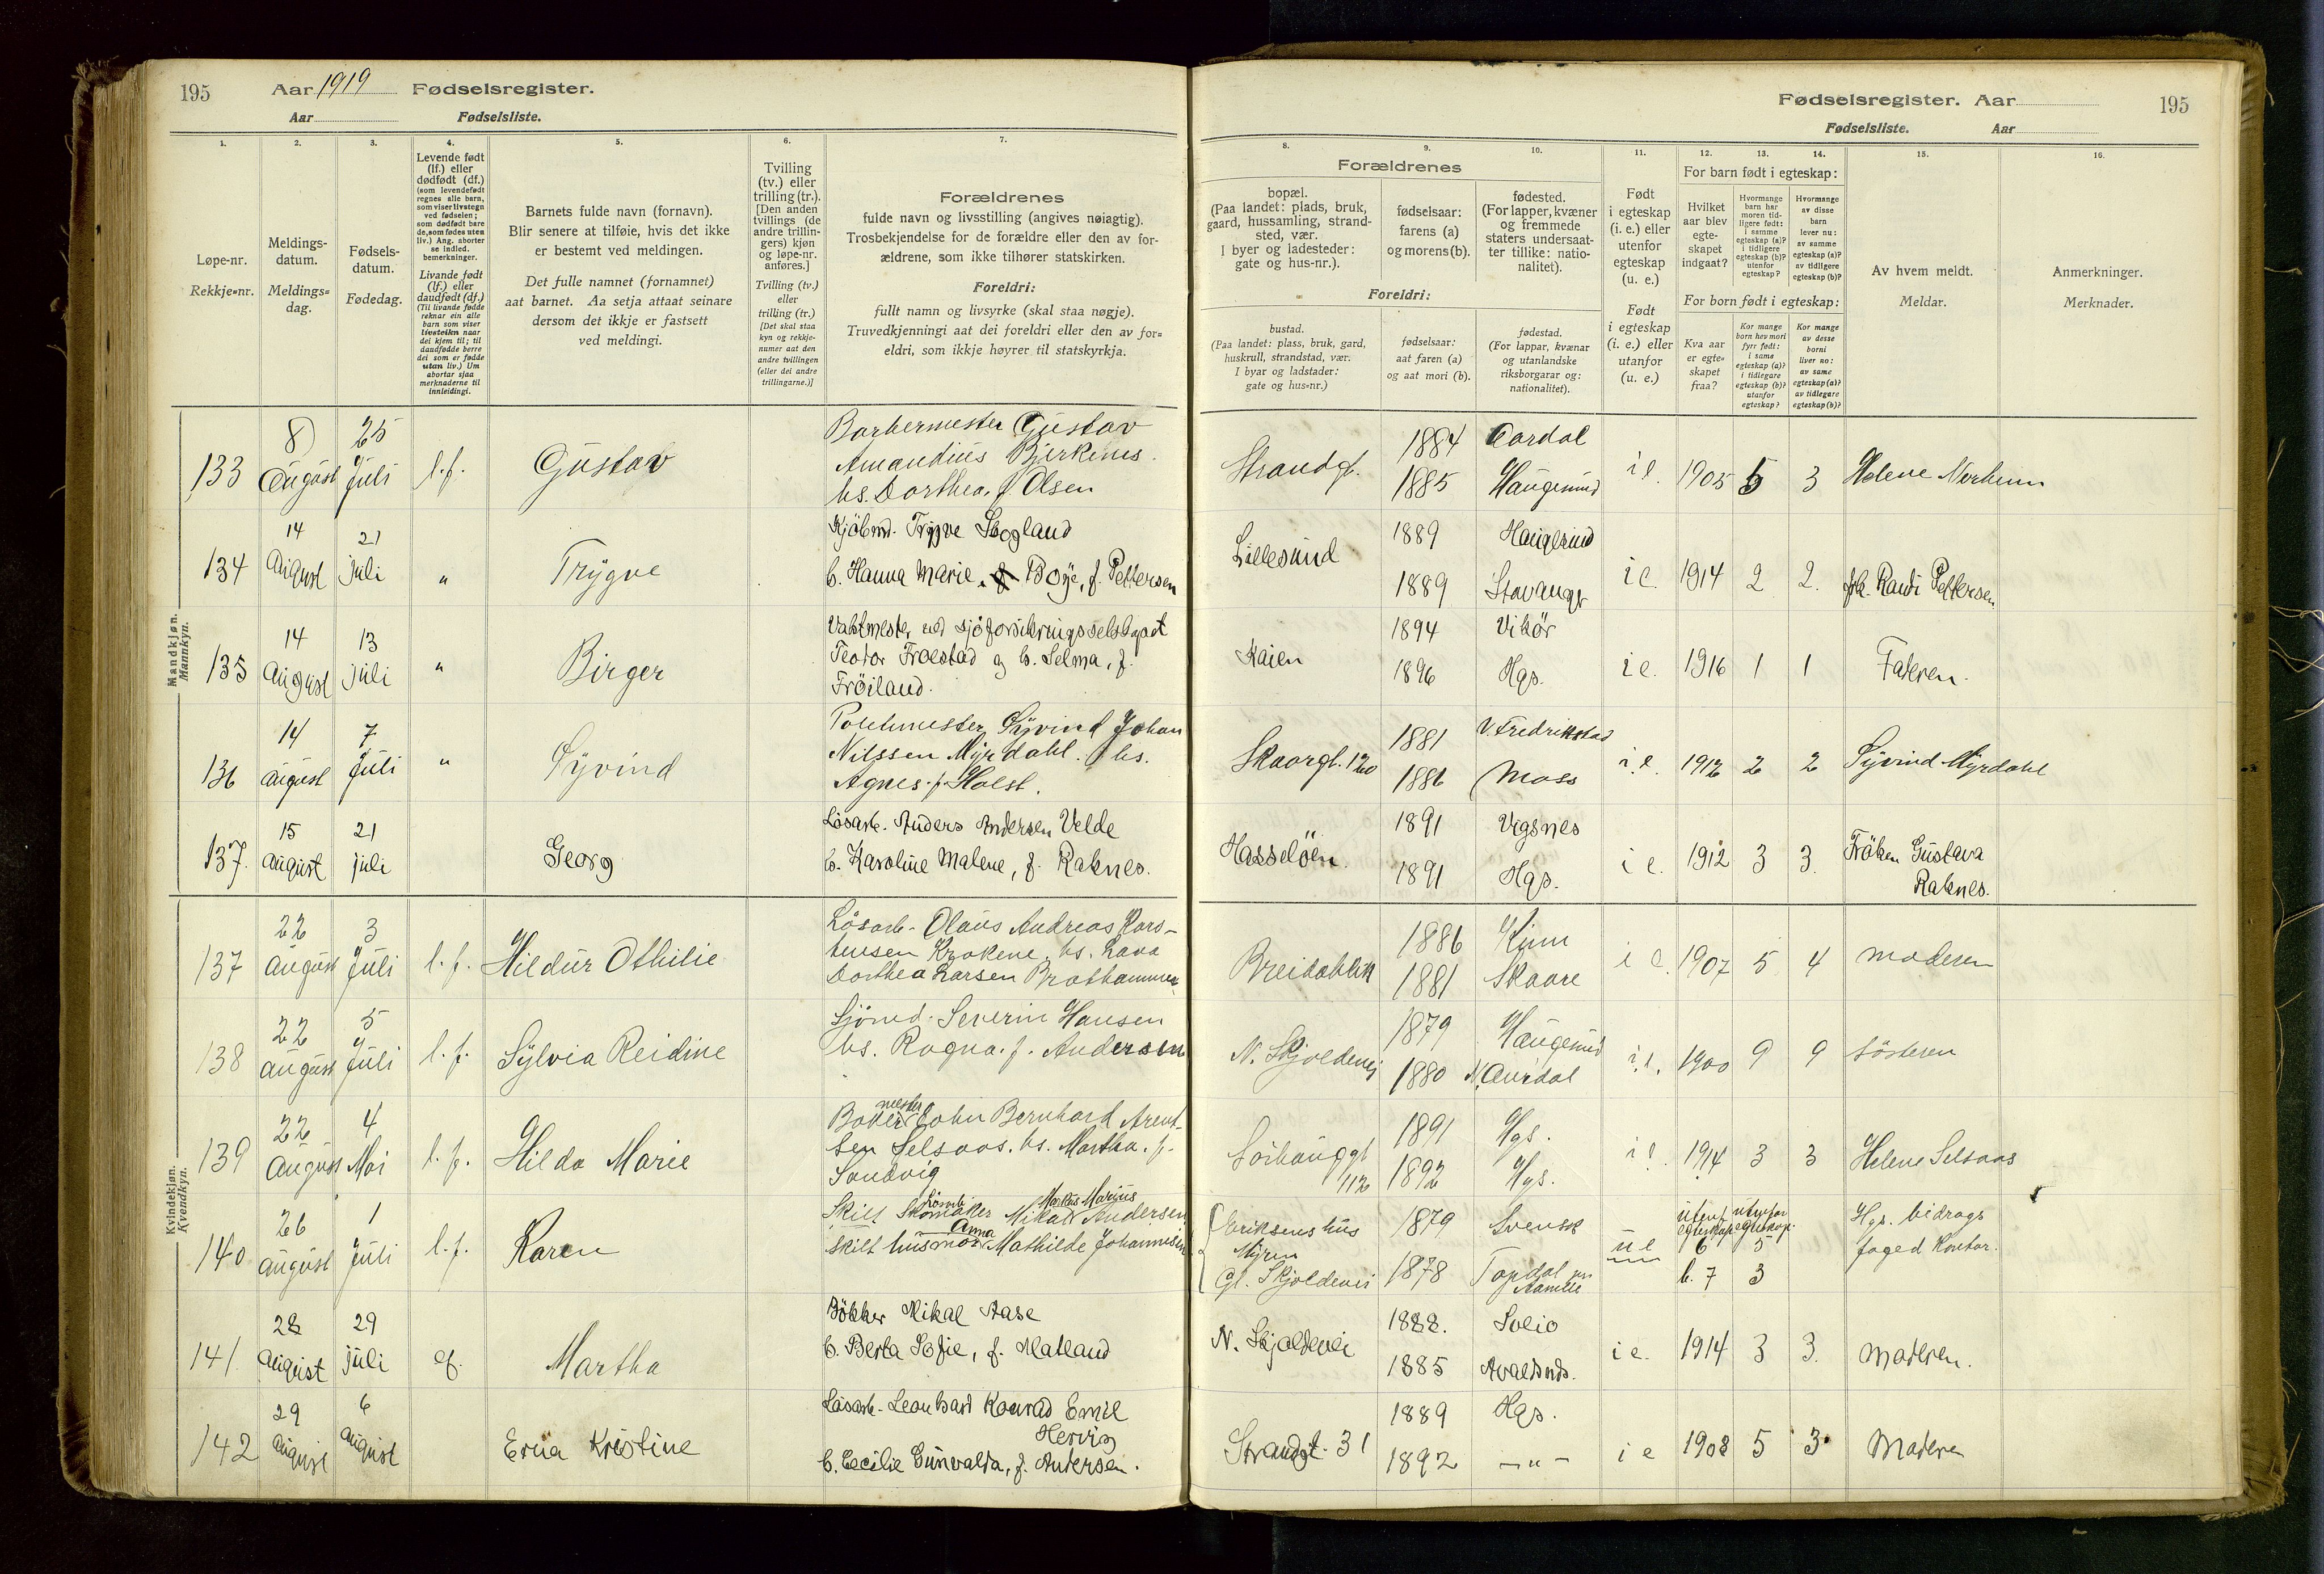 195
Aar 1919 Fødselsregister.
Aar Fødselsliste.
Fødselsregister. Aar
195
Fødselsliste. Aar
1.
Løpe-nr.
Rekkje=nr.
2.
Meldings-
datum.
Meldings=
dag.
3.
Fødsels-
datum.
Fødedag.
4.
Levende født
(lf.) eller
dødfødt (df.)
(som levendefødt
regnes alle barn,
som viser livstegn
ved fødselen;
som dødfødt bare
de, som fødes uten
liv.) Ang. aborter
se indled.
bemerkninger.
Livande født
(lf.) eller
daudfødt (df.)
(Til livande fødde
reknar ein alle
barn som viser
livsteikn naar
dei kjem til; til
daudfødde berre
dei som er fødde
utan liv.) Um
abortar sjaa
merknaderne til
innleidingi.
5.
Barnets fulde navn (fornavn).
Blir senere at tilføie, hvis det ikke
er bestemt ved meldingen.
Det fulle namnet (fornamnet)
aat barnet. Aa setja attaat seinare
dersom det ikkje er fastsett
ved meldingi.
6.
Tvilling
(tv.) eller
trilling (tr.).
[Den anden
tvillings (de
andre trillin-
gers) kjøn
og løpe-nr.
anføres.]
Tvilling (tv.)
eller
trilling (tr.)
[Det skal staa
kyn og rekkje-
numer aat den
andre tvillingen
(eller dei andre
trillingarne.)]
7.
Forældrenes
fulde navn og livsstilling (angives nøiagtig).
Trosbekjendelse for de forældre eller den av for-
ældrene, som ikke tilhører statskirken.
Foreldri:
fullt namn og livsyrke (skal staa nøgje).
Truvedkjenningi aat dei foreldri eller den av for=
eldri, som ikkje høyrer til statskyrkja.
8.
Forældrenes
bopæl.
(Paa landet: plads, bruk,
gaard, hussamling, strand-
sted, vær.
I byer og ladesteder:
gate og hus-nr.).
Foreldri:
bustad.
(Paa landet: plass, bruk, gard,
huskrull, strandstad, vær.
I byar og ladstader:
gate og hus=nr.)
9.
fødselsaar:
farens (a)
og morens (b).
fødselsaar:
aat faren (a)
og aat mori (b).
10.
fødested.
(For lapper, kvæner
og fremmede
staters undersaat-
ter tillike: natio-
nalitet).
fødestad.
(For lappar, kvænar
og utanlandske
riksborgarar og:
nationalitet).
11.
Født
i egteskap
(i. e.) eller
utenfor
egteskap
(u. e.)
Født
i egteskap
(i. e.) eller
utanfor
egteskap
(u. e.)
12. 13. 14.
For barn født i egteskap:
Hvilket
aar blev
egte-
skapet
indgaat?
Hvormange
barn har
moren tid-
ligere født:
i samme
egteskap (a)?
i tidligere
egteskap (b)?
utenfor
egteskap?
Hvormange
av disse
barn
lever nu:
av samme
egteskap (a)?
av tidligere
egteskap (b)?
For born født i egteskap:
Kva aar
er egte=
skapet
fraa?
Kor mange
born hev mori
fyrr født:
i same
egteskap (a)?
i tidlegare
egteskap (b)?
utanfor
egteskap?
Kor mange
av desse
borni
liver no:
av same
egteskap (a)?
av tidlegare
egteskap (b)?
15.
Av hvem meldt.
Meldar.
16.
Anmerkninger.
Merknader.
Mandkjøn.
Mannkyn.
133 8 August 25 Juli l.f. Gustav
Barbermester Gustav
Amandius Birkenes
hs. Dorthea. f. Olsen
Strandgt. 1884 Aardal
1885 Haugesund i e. 1905 5 3 Helene Norheim
134 14 August 21 juli " Trygve
Kjöbmd. Trygve Skogland
h. Hanna Marie, Boye, f. Pettersen
Lillesund 1889 Haugesund
1889 Stavanger i e. 1914 2 2. frk. Randi Pettersen
135 14 August 13 juli " Birger
Vaktmester ved sjöforsikringsselskapet
Teodor Froestad og h. Selma, f.
Fröiland.
Kaien 1894 Vikör
1896 Hgs. i e. 1916 1 1 Faderen.
136 14 august 7 Juli " Öyvind
Politimester Öyvind Johan
Nilssen Myrdahl. hs.
Agnes. f. Holst.
Skaregt. 120 1881 V. Fredrikstad
1886 Moss i.e. 1912 2 2 Öyvind Myrdahl
137. 15 august 21 juli Georg
Lösarb. Anders Andersen Velde
h. Karoline Malene, f. Raknes.
Hasselöen. 1891 Vigsnes
1891 Hgs. i e. 1912 3 3. Fröken Gustava
Raknes.
Kvindekjøn.
Kvendkyn.
137 22 August 3 Juli l.f. Hildur Othilie
Lösarb. Olaus Andreas Kars-
tensen Krokene. hs. Lava
Dorthea Larsen Brathammer
Breidablik 1886 Kinn
1881 Skaare i e. 1907 5 4 moderen
138 22 august 5 Juli l.f. Sylvia Reidine
Sjömd. Severin Hansen
hs. Ragna. f. Andersen
N. Skjoldevei 1879 Haugesund
1880 N. Aurdal i.e. 1900 9 9 sösteren
139 22 August 4 Mai l.f. Hilda Marie
Bakermester John Bernhard Arent-
sen Selsaas. hs. Martha. f.
Sandvig
Sörhauggt 112 1891 Hgs.
1892 Hgs. i e. 1914 3 3 Helene Selsaas
140 26 august 1 Juli l.f. Karen
Skilt Markus Marius Andersen
skilt husmor Anna Mathilde Johannesen
Eriksens hus
Myren
Gl. Skjoldevei 1879 Svensk
1878 u e
utenf. egteskap 6 utenfor egteskap. 5
b. 7 3
Hgs. bidrags
foged kontor.
141. 28 August 29 juli lf. Martha
Bökker Mikal Aase
h. Berta Sofie, f. Matland
N. Skjoldevei 1888. Sveio
1885 Avaldsnds. i e. 1914 3 3. Moderen.
142 29 August 6 august Erna Kristine
Lösarb. Leonhard Konrad Emil
Hervig
h. Cecilie Gunvalda, f. Andersen.
Strandgt. 31 1889 Hgs.
1892 — " — i e 1908 5 3. Moderen